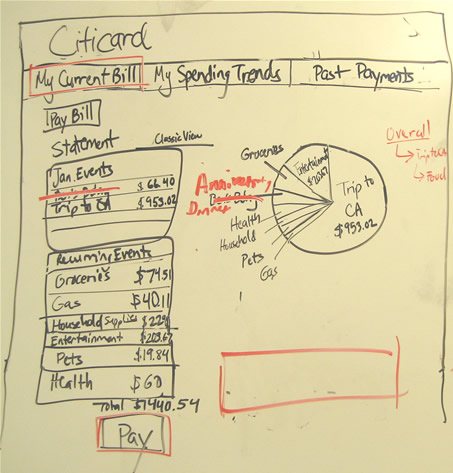 Citicard
My Current Bill My Spending Trends Past Payments
Pay Bill
Statement Classic View
Jan. Events
$66.40
Trip to CA $953.02
Recurring Events
Groceries $74.51
Gas $40.11
Household Supplies
Entertainment
Pets $19.84
Health $60
Total $1440.54
Pay
Groceries
Entertainment
Anniversary
Dinner
Health
Household
Pets
Gas
Trip to
CA
$953.02
Overall
Trip to CA
Food